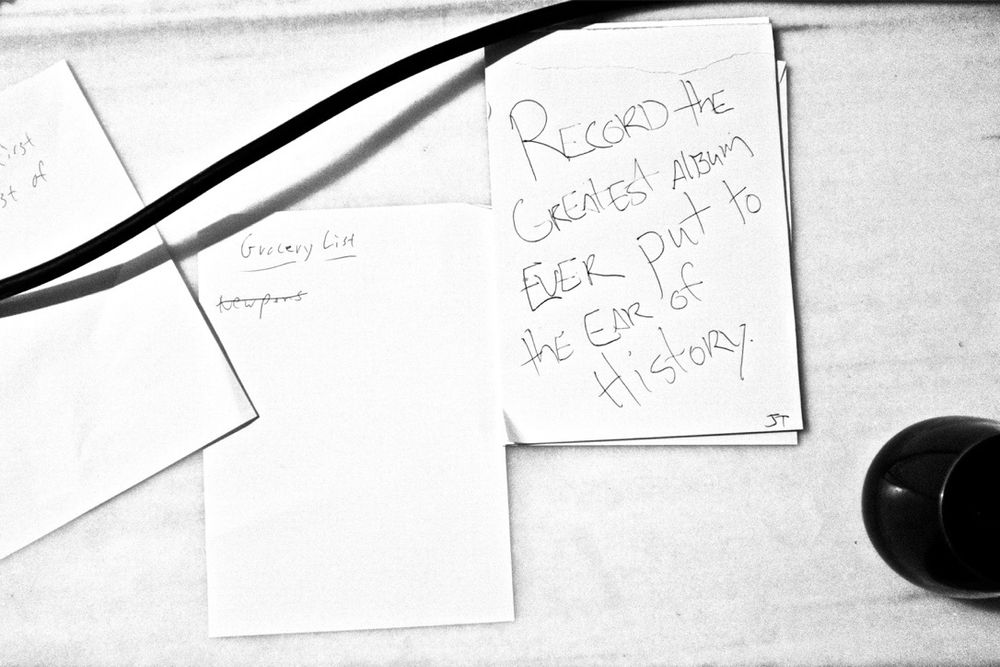 first
st of
Grocery List
Newports
RECORD the
GREATEST ALBUM
EVER Put to
the EAR of
History.
JT